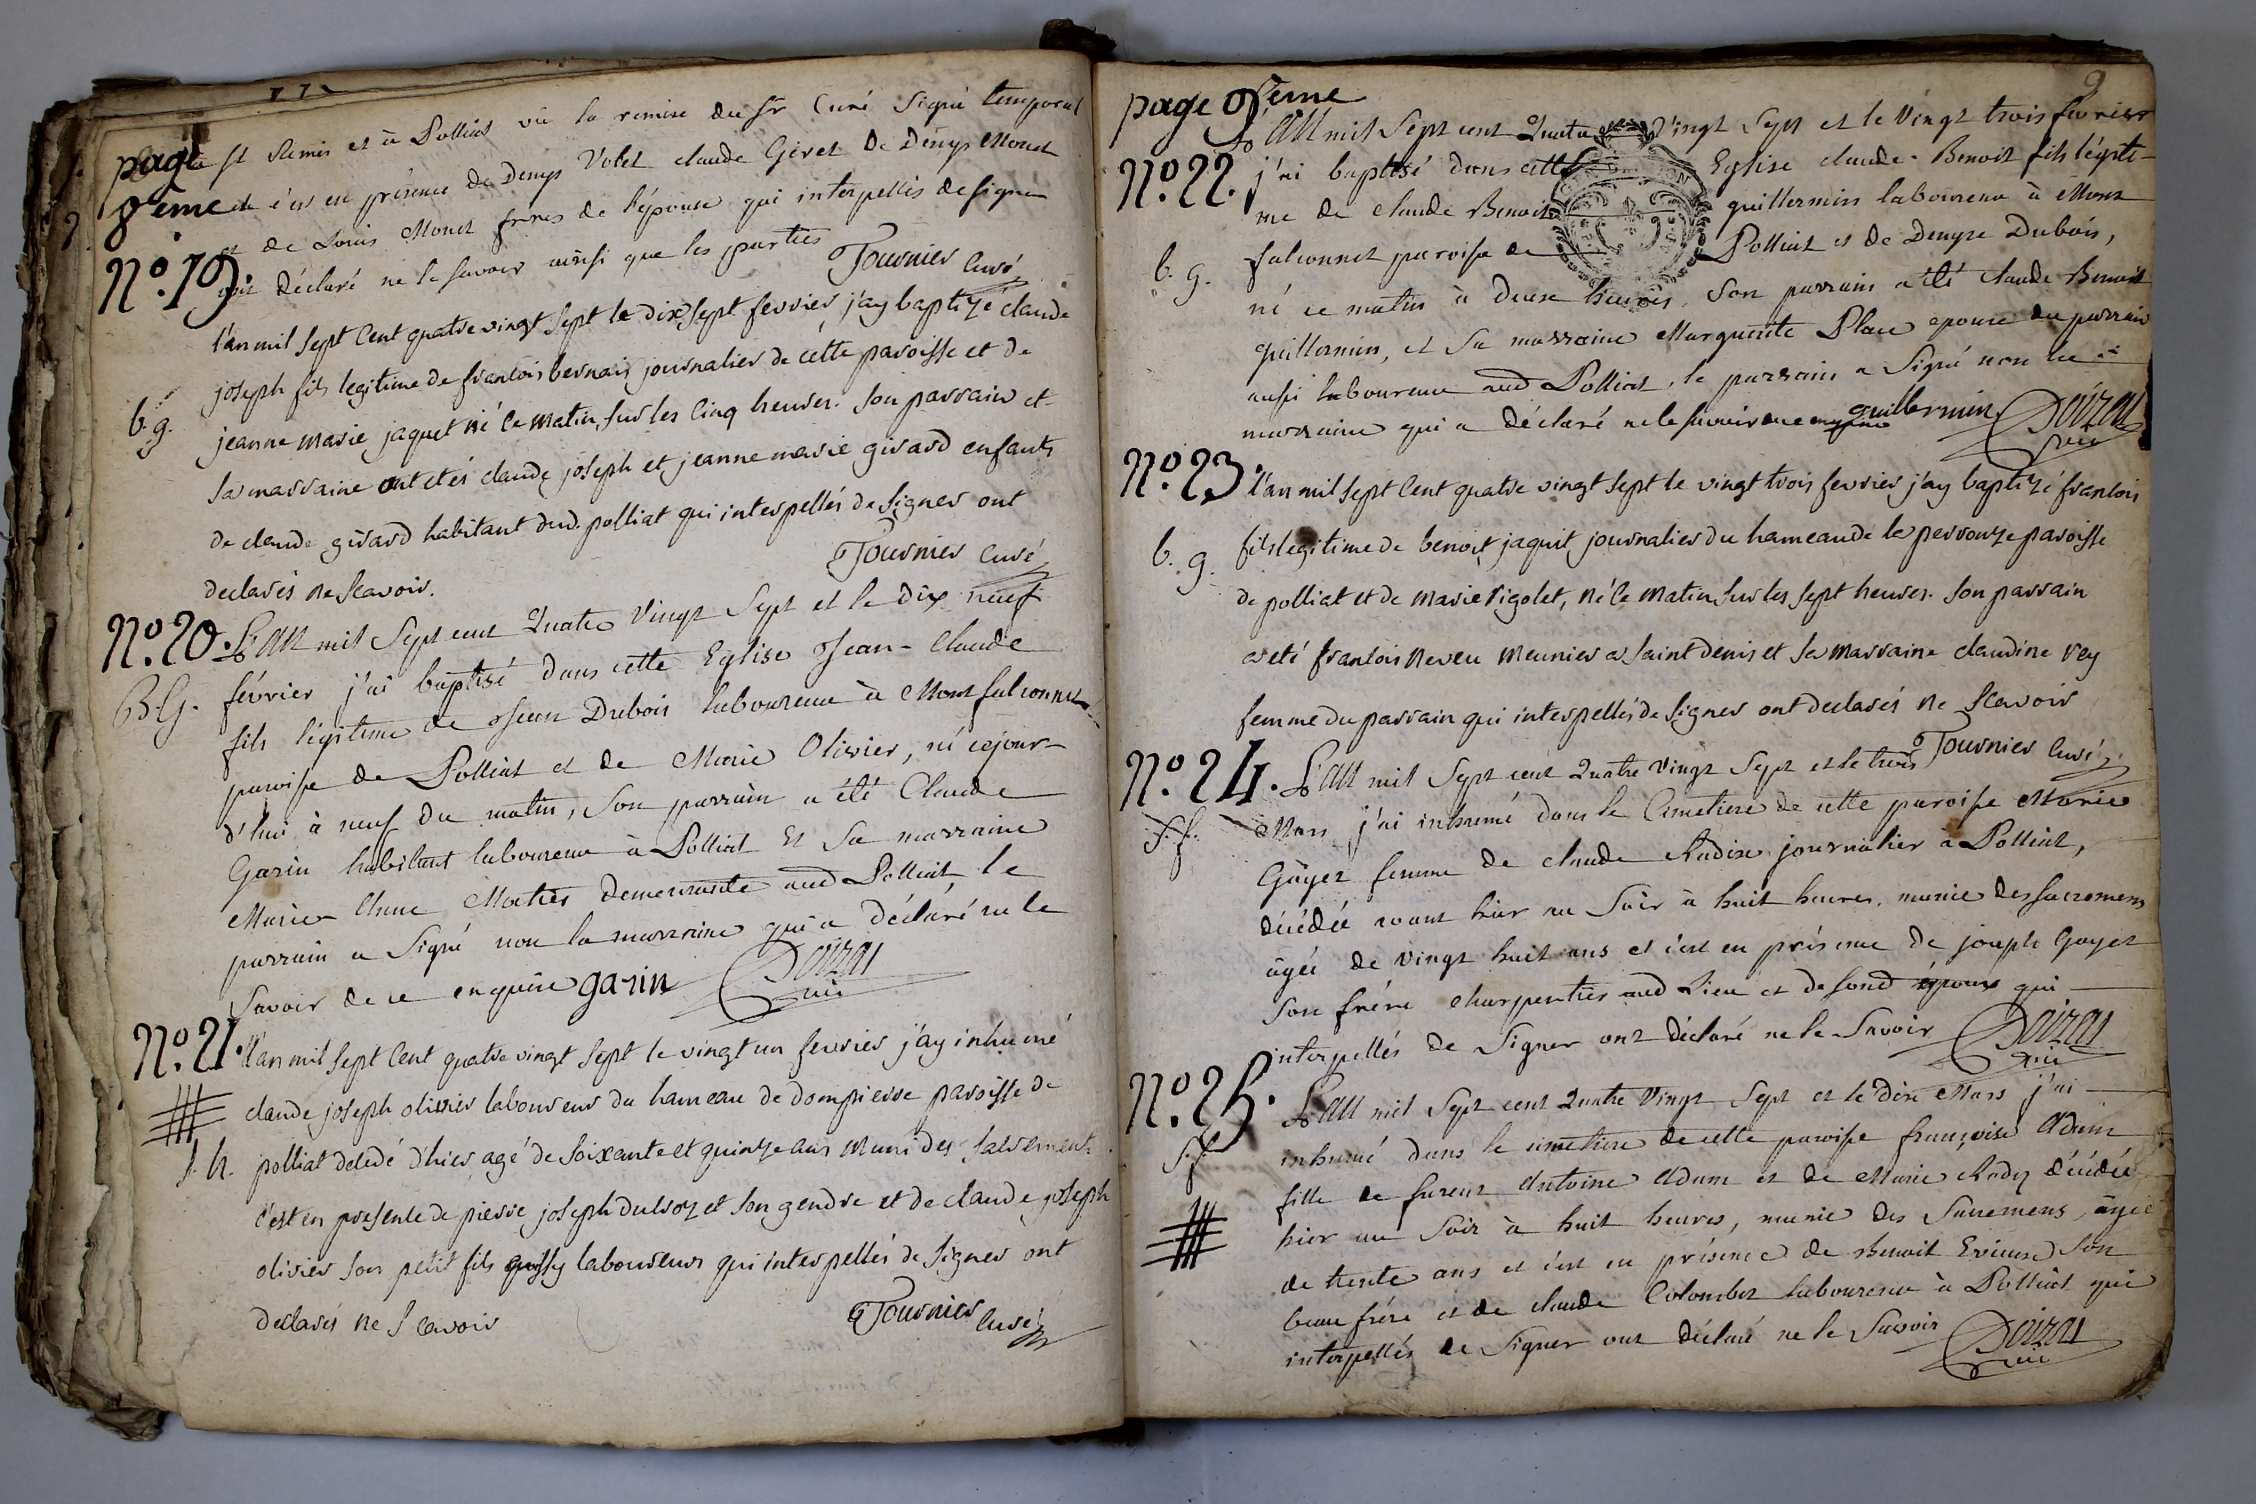 page
8eme
St Remis et à Polliat vû la remise du Sr Curé Signé temporal
et ce en présence de Denys Volet claude Givet De Denys Monet
et de Louis Monet freres de l'épouse qui interpellés de signer
ont déclaré ne le savoir ainsi que les parties Tournier Curé
N°.19.
l'an mil sept Cent quatre vingt sept le dix sept fevrier j'ay baptizé claude
joseph fils legitime de francois bernard journalier de cette paroisse et de
b. g.
jeanne marie jaquet né ce matin, sur les Cinq heures. son parrain et
sa marraine ont etés claude joseph et jeanne marie girard enfants
de claude girard habitant dud. polliat qui interpellés de signer ont
declarés ne scavoir. Tournier Curé
N°.20. L'an mil Sept cent Quatre Vingt Sept et le dix neuf
B. G. février j'ai baptisé dans cette Eglise Jean-Claude
fils légitime de Jean Dubois laboureur à Montfalconnet
paroisse de Polliat et de Marie Olivier, né cejour-
d'hui à neuf du matin, Son parrain a été Claude
Garin habitant laboureur à Polliat Et Sa marraine
Marie Anne Mortier demeurante aud Polliat, le
parrain a Signé non la marraine qui a déclaré ne le
Savoir de ce enquise garin Doizai curé
N°.21. l'an mil sept Cent quatre vingt sept le vingt un fevrier j'ay inhumé
claude joseph olivier laboureur du hameau de dompierre paroisse de
s. h. polliat decedé d'hier agé de soixante et quinze ans muni des sacrements
c'est en presence de pierre joseph dulroz et son gendre et de claude joseph
olivier son petit fils aussy laboureurs qui interpellés de signer ont
declarés ne scavoir Tournier Curé
9
page 9eme
N°.22. L'an mil Sept cent Quatre Vingt Sept et le Vingt trois fevrier
j'ai baptisé dans cette Eglise claude-Benoit fils légiti-
me de claude Benoit guillermin laboureur à Mont
b. g. falconnet paroisse de Polliat et de Denyse Dubois,
né ce matin à deux heures. Son parrain a été claude Benoit
guillermin, et Sa marraine Marguerite Place epouse du parrain
aussi laboureur aud Polliat, le parrain a Signé non la
marraine qui a déclaré ne le savoir de ce enquise guillermin Doizai curé
N°.23. l'an mil sept Cent quatre vingt sept le vingt trois fevrier j'ay baptizé francois
b. g. fils legitime de benoit jaquit journalier du hameau de la perrouze paroisse
de polliat et de marie rigolet, né ce matin sur les sept heures. son parrain
a eté francois neveu meunier a saint denis et sa marraine claudine rey
femme du parrain qui interpellés de signer ont declarés ne scavoir
Tournier Curé
N°.24. L'an mil Sept cent Quatre Vingt Sept et le trois
s. f. Mars j'ai inhumé dans le Cimetiere de cette paroisse Marie
Gayet femme de claude Rudin journalier à Polliat,
décédée avant hier au Soir à huit heures. munie des sacremens
âgée de Vingt huit ans et c'est en présence de joseph Gayet
Son frère charpentier aud Lieu et de sond époux qui
interpellés de Signer ont déclaré ne le Savoir Doizai curé
N°.25. L'an mil Sept cent Quatre Vingt Sept et le dix Mars j'ai
s. f. inhumé dans le cimetiere de cette paroisse françoise Adam
fille de fureur Antoine Adam et de Marie Rudy décédée
hier au Soir à huit heures, munie des Sacremens, âgée
de trente ans et c'est en présence de Benoit Evieux Son
beau frére et de claude Colomber laboureur à Polliat qui
interpellés de Signer ont déclaré ne le Savoir Doizai curé